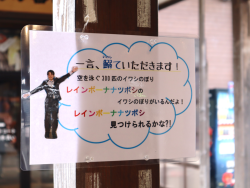 一言、鰯ていただきます！
空を泳ぐ300匹のイワシのぼり
レインボーナナツボシの
イワシのぼりがいるんだよ！
レインボーナナツボシ
見つけられるかな?!